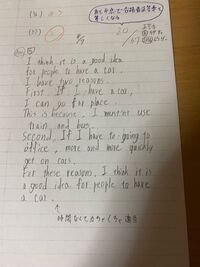 (36)
(37)
8/9
20
37
I think it is a good idea
for people to have a car.
I have two reasons.
First If I have a car,
I can go far place.
This is because I mustn't use
train, and bus.
Second, If I have to going to
office, more and more quickly
get on cars.
For these reasons, I think it is
a good idea for people to have
a car.
↑
時間なくてめちゃくちゃ適当